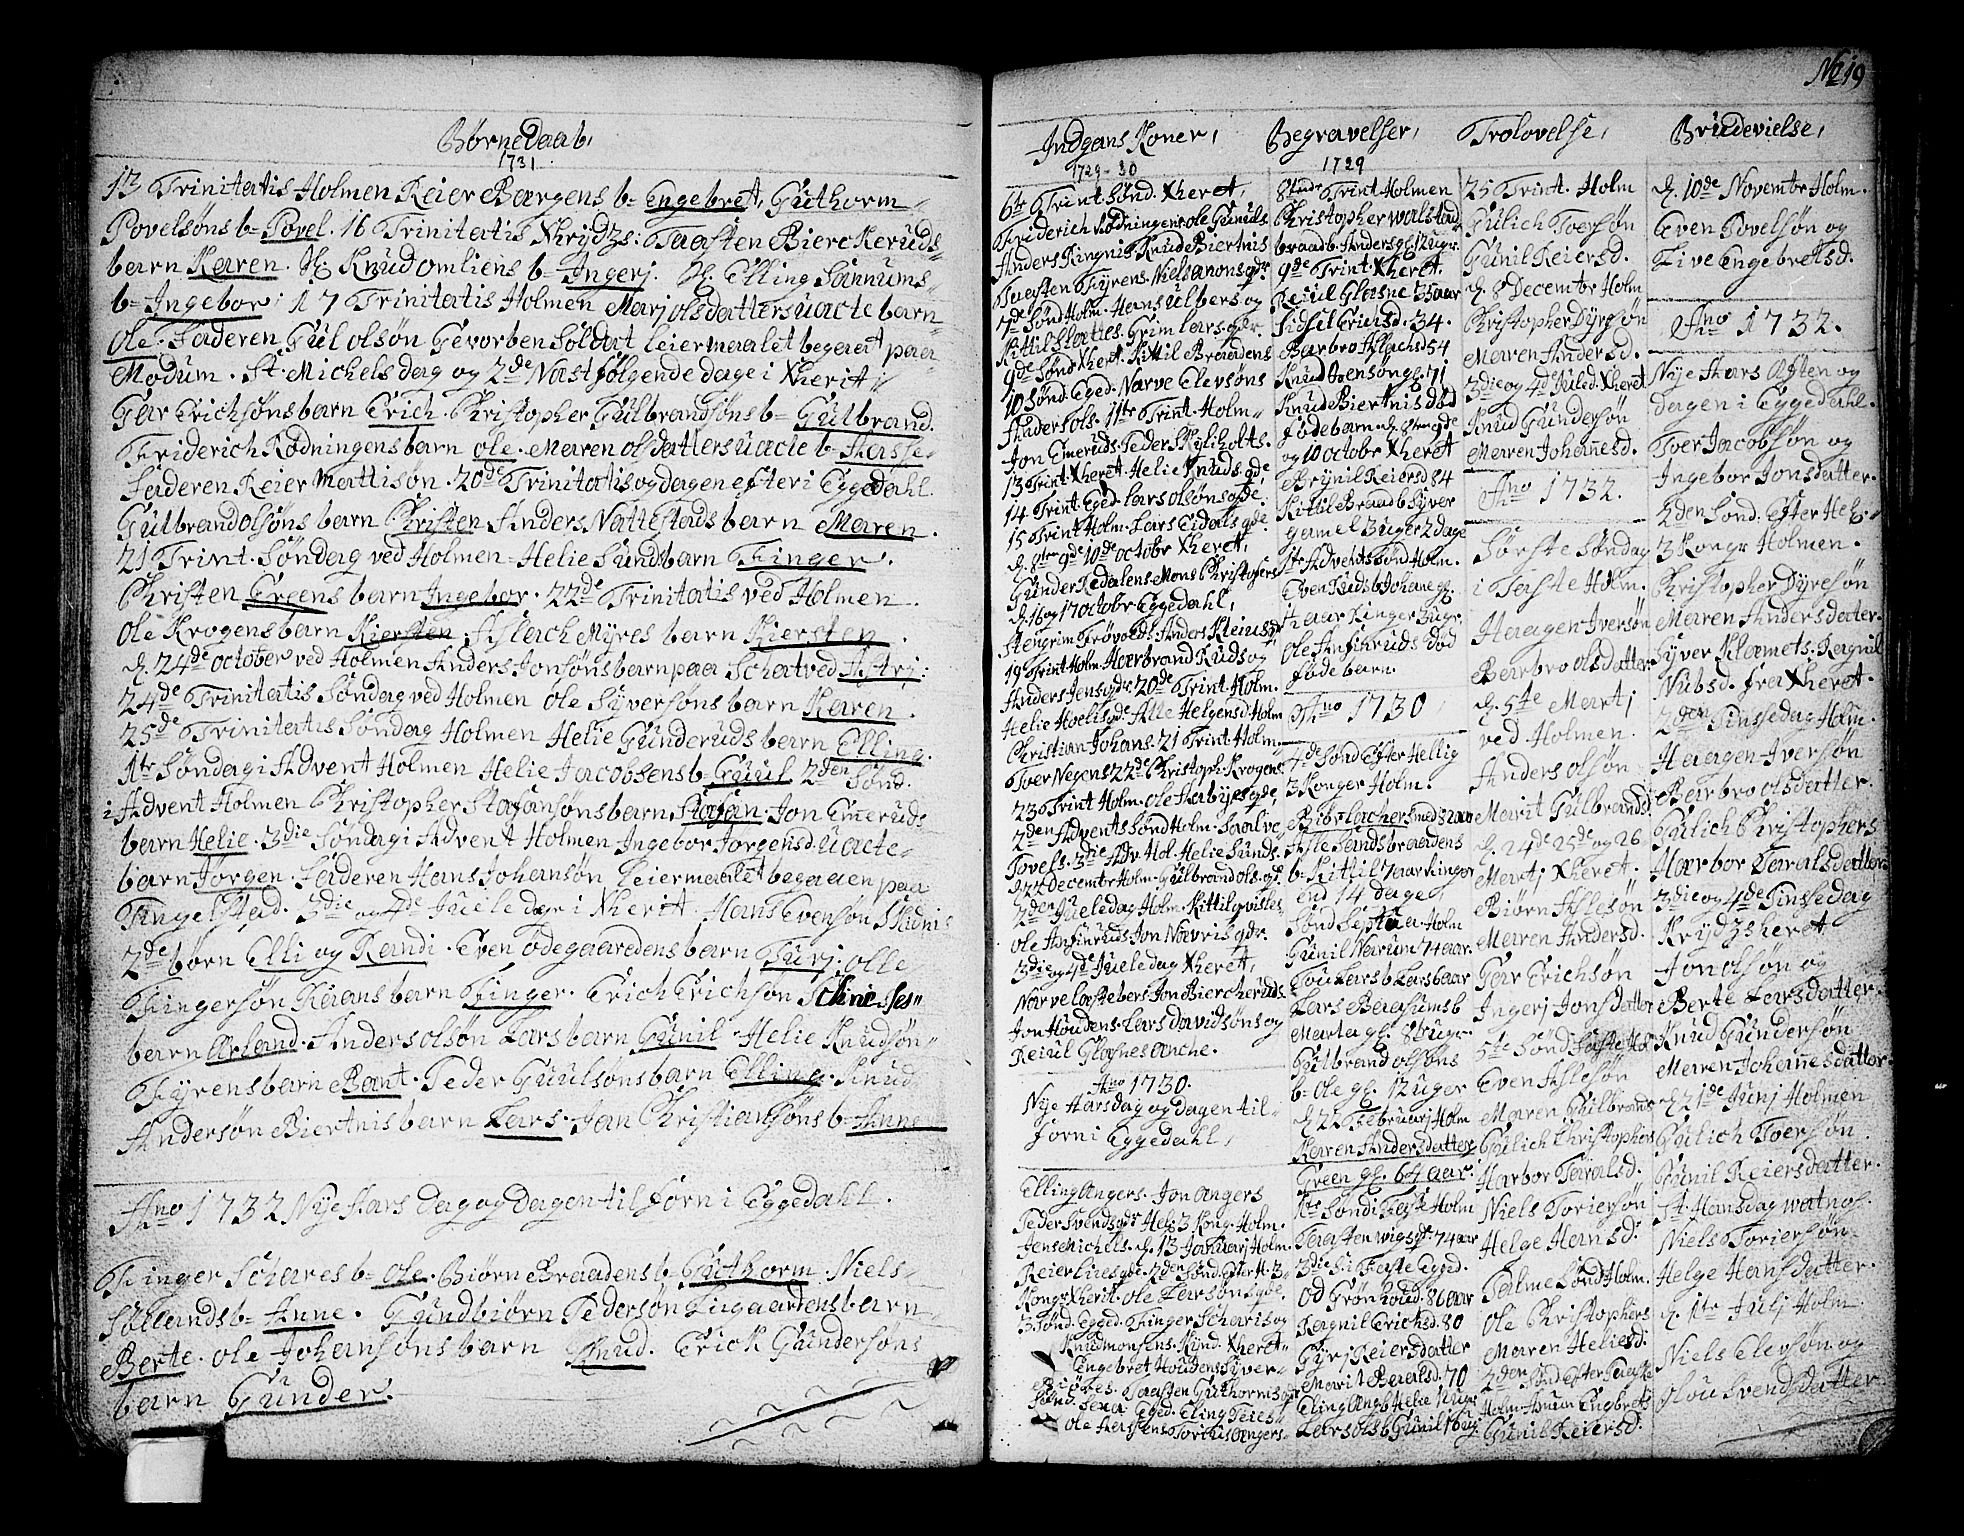 Børnedaab,
1731
13 Trinitatis Holmen Reier Bergens b= Engebret, Guthorm
Povelsøns b= Povel. 16 Trinitatis Xkrydzs: Taasten Bierckeruds
barn Karen. Knud omliens b= Ingerj. Elling Sannums
b= Ingebor: 17 Trinitatis Holmen Marj olsdatters uacte barn
Ole. Faderen Gul olsøn Gevorben Soldat leiermaalet begaaet paa
Modum. St. Michels dag og 2de Næstfølgende dage i Xherit,
Gar Erichsøns barn Erich. Christopher Gulbrandsøns b= Gulbrand.
Friderich Rødningens barn ole. Maren olsdatters uacte b=
Faderen Reier Mattisøn. 20de Trinitatis og dagen efter i Eggedahl.
Gulbrand olsøns barn Christen Anders Nattestads barn Maren.
21 Trint. Søndag ved Holmen Helie Sundbarn Finger.
Christen Green s barn Ingebor. 22de Trinitatis ved Holmen
Ole Krogens barn Kiersten. Aslach Myres barn Kiersten.
d. 24de october ved Holmen Anders Jonsøns barn paa Schatved Astri:
24de Trinitatis Søndag ved Holmen Ole Syversøns barn Karen.
25de Trinitatis Søndag Holmen Helie Gunderuds barn Elling.
1te Søndag i Advent Holmen Helie Jacobsens b= Guul 2den Sønd.
i Advent Holmen Christopher Stafansøns barn Stafan. Jon Emeruds
barn Helie. 3die Søndag i Advent Holmen Ingebor Jorgensd. uacte
barn Jørgen. Faderen Hans Johansøn Leiermaalet begaaen paa
Fingelstad. 3die og 4de Juele dage i Xherit Hans Evensøn Skadnis
2de børn Elli og Randi. Even ødegaardens barn Turj. olle
Fingersøn Kaans barn Finger. Erich Erichsøn
barn Erland. Anders olsøn Lars barn Gunil Helie Knudsøn
Fyrens barn Bent. Peder Guulsøns barn Elling. Knud
Andersøn Biertnis barn Lars. Jan Christiansøns b= Anne
Ano 1732 Nye Aars dag og dagen tilforn i Eggedahl.
Finger Schares b= Ole. Biørn Braadens b= Guthorm. Niels
b= Anne. Gundbiørn Pedersøn Lingaardens barn
Berte. ole Johansøns barn Knud. Erick Gundersøns
barn Gunder.
No 19
Indgans Koner,
1729-30
6te Trint Sønd. Xheret,
Friderich Rødningens ole Gunuls
Anders Ringnis Knud Biertnis
Taasten Fyrens. Niels
7de Sønd Holm. Hans ulbers og
Kittil Slattes. Grim Lars qdr.
9de Sønd Xheret. Kittil Braadens
10 Sønd. Eged. Narve Elevsøns
Anders ols. 11te Trint. Holm
Jon Emeruds. Peders
13 Trint. Xheret. Helie Knuds qde,
14 Trint. Eged. Lars olsøns qde.
15 Trint Holm. Lars Eidals qde.
d. 8te 9de 10de octobr Xheret,
Gunder Mons Christophers
d. 16 og 17 octobr Eggedahl,
Stengrim Trøvolds Anders
19 Trint Holm. Harbrand Ruds og
Anders Jens qdr. 20de Trint Holm.
Helie Helgensd. Holm
Christian Johans. 21 Trint Holm
Toer Negens 22de Christoph. Krogens
23 Trint Holm. ole
2den Advents Sønd Holm.
Povels. 3die Adv. Hol. Helie Sunds.
d. 22 Decembr Holm. Gulbrand ols.
2den Jueledag Holm. Kittil
Ole Anfinruds Jon Navris qdr.
3die og 4de Jueledag Xheret,
Narve Jon Biercheruds
Jon Houdens. Lars Davidsøns og
Reiul Glasnes
Ano 1730.
Nye Aarsdag og dagen til
forn i Eggedahl,
Elling Angers. Jon Angers
Peder Svends qdr. Hel. 3 Kong. Holm.
Jens Michels. d. 13 Januarj Holm.
Reier Lires qde. 2den Sønd. Efter H. 3
Kongr. Xherit. ole Larsøns qde
3 Sønd. Eged. Finger Scharis og
Knud Xheret
Engebret Houdens Syver
Taasten Guthorms
Sønd. Eged. Eling
Ole Angers
Begravelser,
1729
8nde Trint Holmen
Christopher Walstad
braad b. Anders gl. 12 ugr.
9de Trint. Xheret.
Reiul Glasne 35 aar
Sidsil Erichsd. 34.
Barbro Aslachsd 54
Knud Evenson gl. 71
Knud Biertnis død
fødebarn d. 8ten 9de
og 10 octobr Xheret
Brynil Reiersd 84
Kittil Braad b Syver
gamel 3 uger 2 dage
1te Advents Sønd Holm.
Even Ruds b Johane gl.
aar Finger ugr.
Ole Anfinruds død
fødebarn.
Ano 1730,
4de Sønd Efter Hellig
3 Konger Holm.
braadens
b= Kittil 7 aar Ringer
end 14 dage,
Sønd Septua= Holm
Gunil Narum 74 aar.
Tou Lars b Lars 6 aar
Lars b
Marta gl. 8 ugr.
Gulbrand olsøns
b= Ole gl. 12 uger
d. 22 Februarj Holm
Karen Andersdatter
Green gl. 64 aar.
1te Sønd i Faste Holm
Taasten 74 aar
3die S. i Faste Eged.
Od Grønhoud. 86 aar
Ragnil Erichsd. 80
Gurj Reiersdatter
Marit 70
Eling Ang b Helie 1 ugr
Lars ols b Gunil 16 ug.
Trolovelse,
25 Trint. Holm
Gulich Toersøn
Gunil Reiersd.
d. 8 Decembr Holm
Christopher Dyresøn
Maren Andersd.
3die og 4de Juled. Xheret
Knud Gundersøn
Maren Johanesd.
Ano 1732.
Første Søndag
i Faste Holm.
Haagen Iversøn
Barbro olsdatter
d. 5te Martj
ved Holmen.
Anders olsøn
Marit Gulbrandsd
d. 24de 25de og 26
Martj Xheret.
Biørn Aslesøn
Maren Andersd.
Gar Erichsøn
Ingerj Jonsdatter
5te Sønd Faste Hol
Even Aslesøn
Maren Gulbrands
Gulich Christophers
Harbor Taralsd.
Niels Toriersøn
Helge Hansd.
Palme Sønd Holm.
Ole Christophers
Maren Heliesd.
2den Sønd Efter Paaske
Holm. Amun Engbrets
Gunil Reiersd.
Brudevielse,
d. 10de Novembr Holm.
Even Povelsøn og
Live Engebretsd.
Ano 1732.
Nye Aars Aften og
dagen i Eggedahl.
Toer Jacobsøn og
Ingebor Jonsdatter.
2den Sønd. Efter Hel.
3 Kongr. Holmen.
Christopher Dyresøn
Maren Andersdatter.
Syver Klamets. Ragnil
Nubsd. fra Xheret.
2den Pinssedag Holm.
Haagen Iversøn
Barbro olsdatter.
Gulich Christophers
Harbor Taralsdatter
3die og 4de Pinssedag
Krydzsheret.
Jon olsøn og
Berte Larsdatter.
Knud Gundersøn
Maren Johannesdatter.
d. 21de Junj Holmen
Gulich Toersøn
Gunil Reiersdatter.
St. Hansdag
Niels Toriersøn
Helge Hansdatter.
d. 1te Julj Holm
Niels Elevsøn og
Svendsdatter